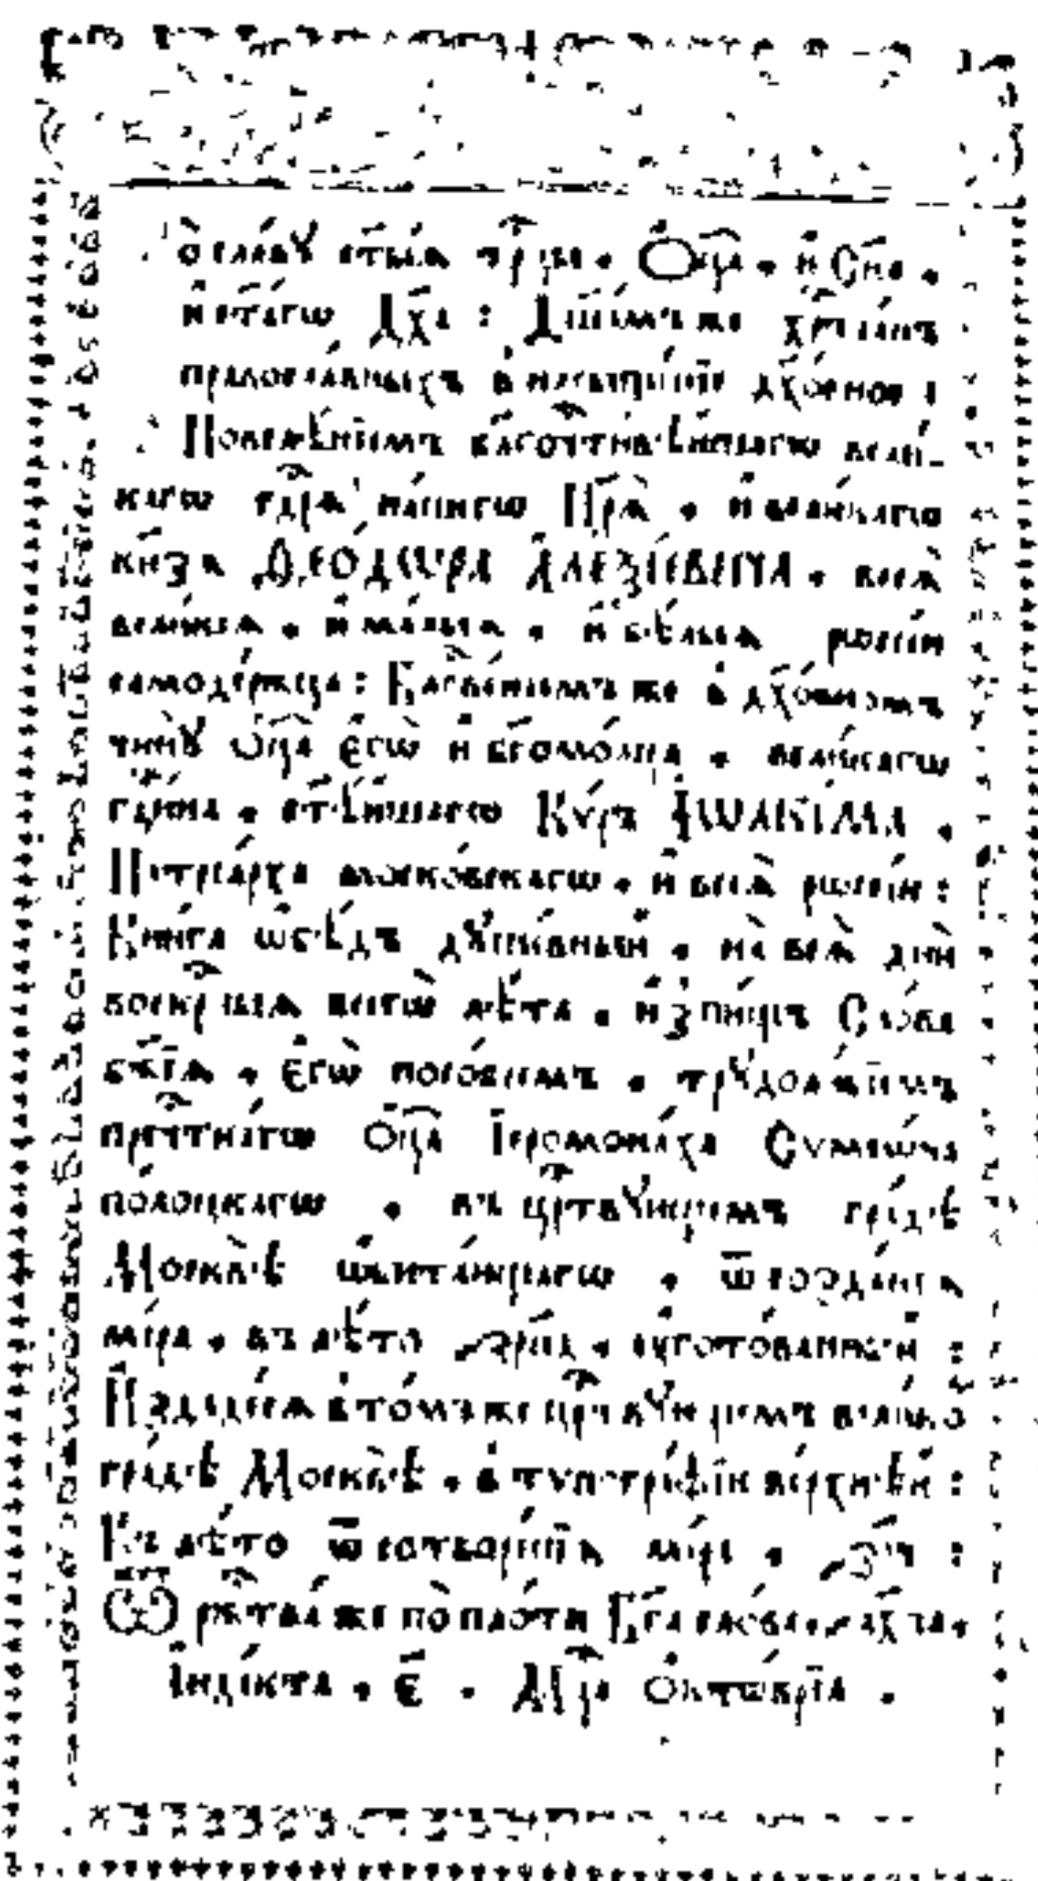 о славꙋ ст҃ыѧ трⷪ҇цы . Ѻ҆ц҃а . и҆ Сн҃а .
и҆ ст҃а́гѡ Дх҃а : Дш҃а́мъ же хрⷭ҇тїа́нъ
правосла́вныхъ в̾ насыще́нїе дх҃о́вное :
Повелѣ́нїемъ бл҃гочⷭ҇ти́вѣйшагѡ вели́-
кагѡ гдⷭ҇рѧ̀ на́шегѡ Цр҃ѧ̀ . и҆ вели́кагѡ
кн҃зѧ ѲЕО́ДѠРА А҆ЛЕѮІ́ЕВИЧА . всеѧ̀
вели́кїѧ . и҆ ма́лыѧ . и҆ бѣ́лыѧ рѡссі́и
самоде́ржца : Бл҃гслове́нїемъ же в̾ дх҃о́вномъ
чи́нꙋ Ѻ҆ц҃а̀ є҆гѡ̀ и҆ бг҃омо́лца . вели́кагѡ
гдⷭ҇и́на . ст҃ѣ́йшагѡ Кѵ́ръ І҆ѠАКІ́МА .
Патрїа́рха моско́вскагѡ . и҆ всеѧ̀ рѡссі́и :
Кни́га ѡ҆бѣ́дъ дꙋше́вный . на̀ всѧ̀ дни̑
воскрⷭ҇ныѧ всегѡ̀ лѣ́та . и҆з̾ пи́щъ Сло́ва
бж҃їѧ . є҆гѡ̀ посо́бїемъ . трꙋдолю́бїемъ
пречⷭ҇тна́гѡ Ѻ҆ц҃а̀ І҆еромона́ха Сѷмеѡ́на
по́лоцкагѡ . въ црⷭ҇твꙋющемъ гра́дѣ
Москвѣ̀ ѡ҆бита́ющагѡ . ѿ созда́нїѧ
мі́ра . въ лѣ́то ҂зрп҃д . ᲂу҆гото́ванный :
И҆зда́сѧ в̾ то́мъ же црⷭ҇твꙋ́ющемъ вели́ко
гра́дѣ Москвѣ̀ . в̾ тѷпогра́фїи ве́рхнѣй :
Въ лѣ́то ѿ сотворе́нїѧ мі́ра . ҂зр҃ч :
Ѿ ржⷭ҇тва́ же по пло́ти Бг҃а сло́ва . ҂ах҃па .
І҆нді́кта . є҃ . Мцⷭ҇а Ѻ҆ктѡ́врїа .